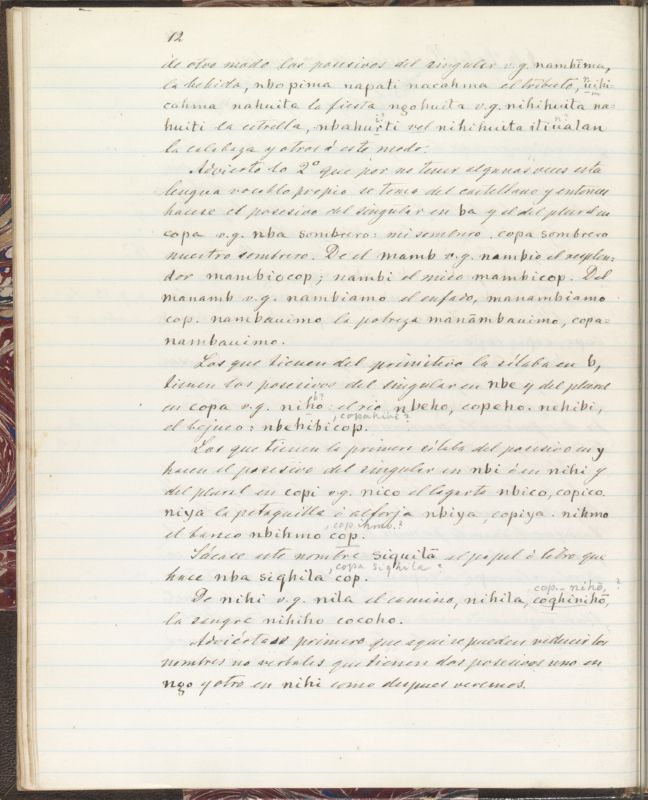 12
de otro modo los posesivos del singular v.g. nambima,
la bebida, nbopima napati nacahma el tributo, nihi-
cahma nahuita la fiesta ngohuita v.g. nihihuita na=
huiti la estrella, nbahuiti vel nihihuita itinalan
la calabaza y otros á este modo.
Advierto lo 2º que por no tener algunas veces esta
lengua vocablo propio se toma del castellano y entonces
hacese el posesivo del singular en ba y el del plural en
copa v.g. nba sombrero: mi sombrero. copa sombrero
nuestro sombrero. De el mamb v.g. nambio el resplan-
dor mambiocop; nambi el mico mambicop. Del
manamb v.g. nambiamo el enfado, manambiamo
cop. nambauimo la pobreza manãmbauimo, copa=
nambauimo.
Los que tienen del primitivo la silaba en b,
tienen los posesivos del singular en nbe y del plural
b?
en copa v.g. niho: el rio nbeho, copeho. nehibi,
, copahibi?
el bejuco: nbehibicop.
Los que tienen la primera silaba del posesivo en y
hacen el posesivo del singular en nbi ó en nihi y
del plural en copi v.g. nico el lagarto nbico, copico.
niya la petaquilla ó alforja nbiya, copiya. nihmo
, cop hmo.?
el banco nbihmo cop.
Sácase este nombre siquitã el papel ó libro que
, copa sighila?
hace nba sighila cop.
cop.- nihõ, ?
De nihi v.g. nila el camino, nihila, coghinihõ,
la sangre nihiho cocoho.
Adviértase primero que aqui se pueden reducir los
nombres no verbales que tienen dos posesivos uno en
ngo y otro en nihi como despues veremos.